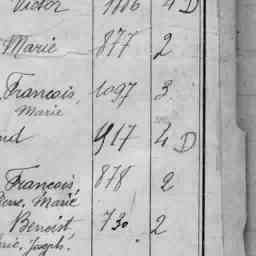 Victor 1186 4 D
Marie 877 2
François, 1097 3
Marie
nd 917 4 D
François, 878 2
Pierre, Marie
Benoist, 730 2
rie, Joseph.